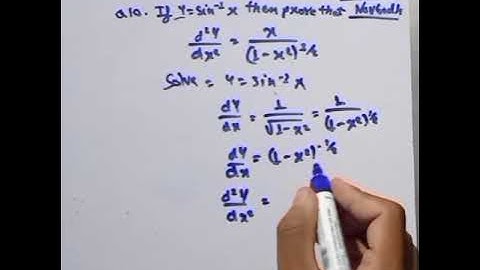 Q10. If Y = sin⁻¹ x then prove that
d²Y/dx² = x/(1-x²)^3/2
Solve = Y = sin⁻¹ x
dY/dx = 1/√(1-x²) = 1/(1-x²)^1/2
dY/dx = (1-x²)^-1/2
d²Y/dx² =